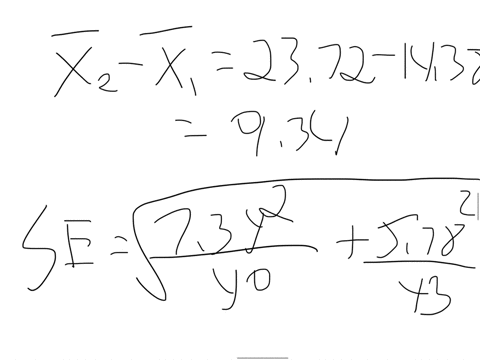 X̄₂ - X̄₁ = 23.72 - 14.38
= 9.34
SE = √(7.34²/40 + 5.78²/43)